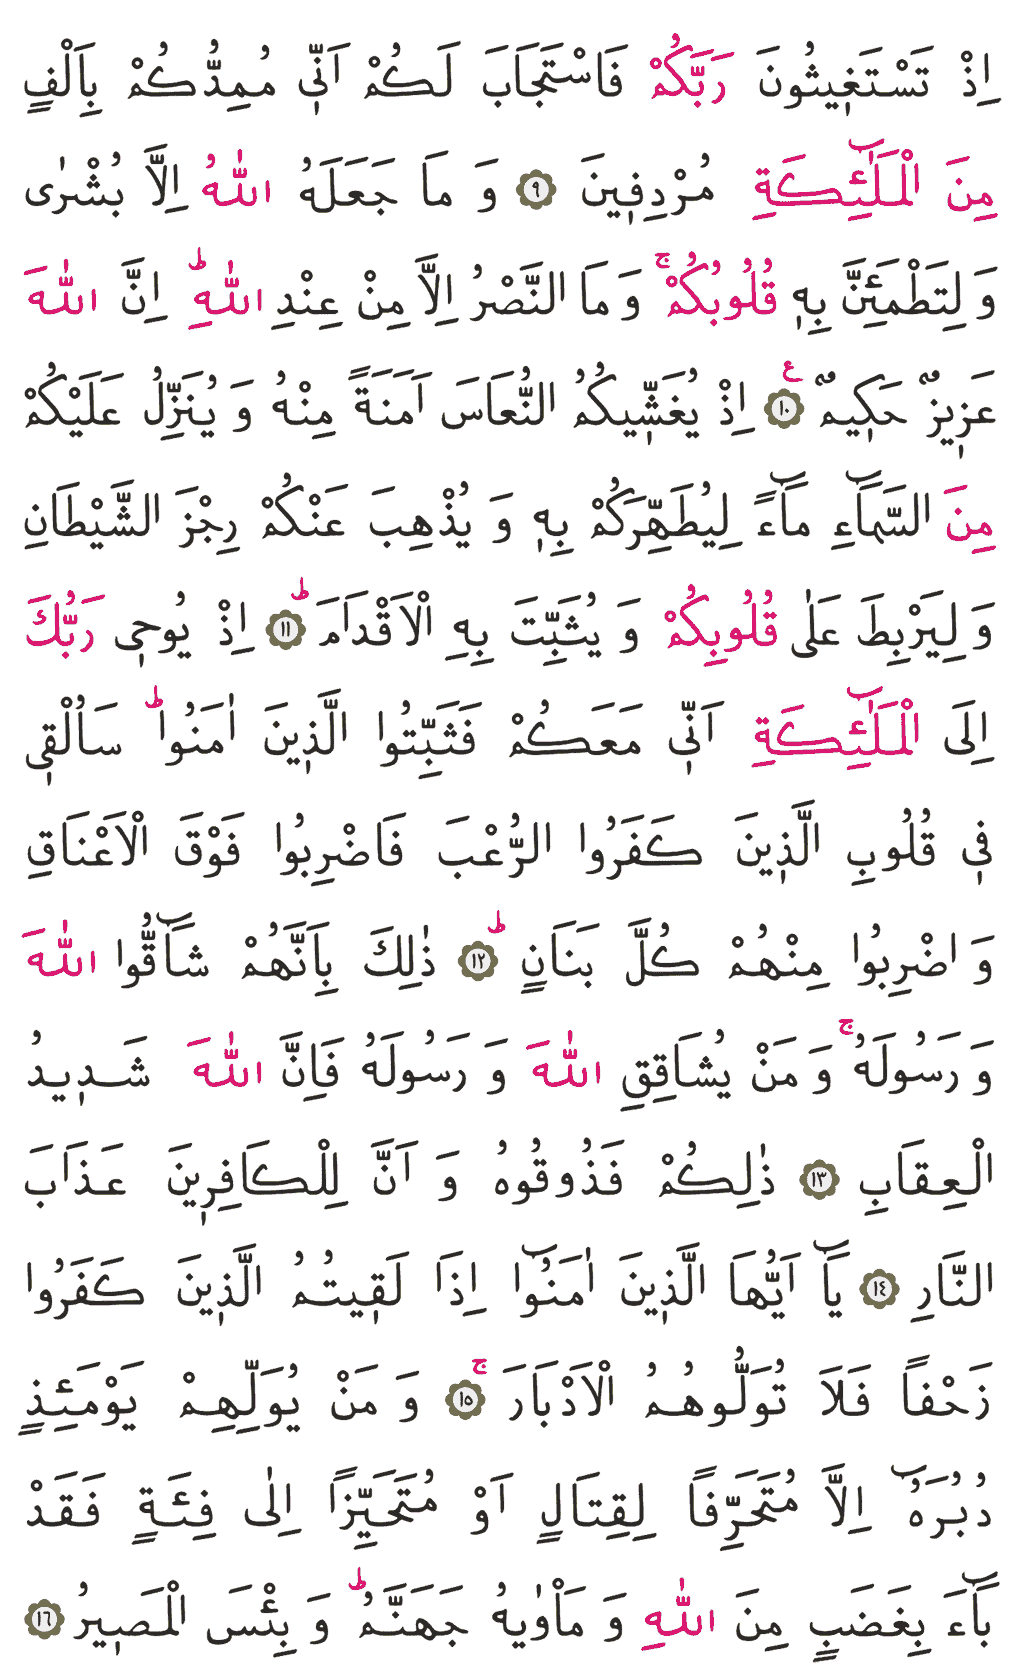 اِذْ تَسْتَغٖيثُونَ رَبَّكُمْ فَاسْتَجَابَ لَكُمْ اَنّٖي مُمِدُّكُمْ بِاَلْفٍ
مِنَ الْمَلٰٓئِكَةِ مُرْدِفٖينَ ﴿٩﴾ وَ مَا جَعَلَهُ اللّٰهُ اِلَّا بُشْرٰى
وَ لِتَطْمَئِنَّ بِهٖ قُلُوبُكُمْۚ وَ مَا النَّصْرُ اِلَّا مِنْ عِنْدِ اللّٰهِؕ اِنَّ اللّٰهَ
عَزٖيزٌ حَكٖيمٌ ﴿١٠﴾ع اِذْ يُغَشّٖيكُمُ النُّعَاسَ اَمَنَةً مِنْهُ وَ يُنَزِّلُ عَلَيْكُمْ
مِنَ السَّمَٓاءِ مَٓاءً لِيُطَهِّرَكُمْ بِهٖ وَ يُذْهِبَ عَنْكُمْ رِجْزَ الشَّيْطَانِ
وَ لِيَرْبِطَ عَلٰى قُلُوبِكُمْ وَ يُثَبِّتَ بِهِ الْاَقْدَامَؕ ﴿١١﴾ اِذْ يُوحٖي رَبُّكَ
اِلَى الْمَلٰٓئِكَةِ اَنّٖي مَعَكُمْ فَثَبِّتُوا الَّذٖينَ اٰمَنُواؕ سَاُلْقٖي
فٖي قُلُوبِ الَّذٖينَ كَفَرُوا الرُّعْبَ فَاضْرِبُوا فَوْقَ الْاَعْنَاقِ
وَ اضْرِبُوا مِنْهُمْ كُلَّ بَنَانٍؕ ﴿١٢﴾ ذٰلِكَ بِاَنَّهُمْ شَٓاقُّوا اللّٰهَ
وَ رَسُولَهُۚ وَ مَنْ يُشَاقِقِ اللّٰهَ وَ رَسُولَهُ فَاِنَّ اللّٰهَ شَدٖيدُ
الْعِقَابِ ﴿١٣﴾ ذٰلِكُمْ فَذُوقُوهُ وَ اَنَّ لِلْكَافِرٖينَ عَذَابَ
النَّارِ ﴿١٤﴾ يَٓا اَيُّهَا الَّذٖينَ اٰمَنُٓوا اِذَا لَقٖيتُمُ الَّذٖينَ كَفَرُوا
زَحْفاً فَلَا تُوَلُّوهُمُ الْاَدْبَارَۚ ﴿١٥﴾ وَ مَنْ يُوَلِّهِمْ يَوْمَئِذٍ
دُبُرَهُٓ اِلَّا مُتَحَرِّفاً لِقِتَالٍ اَوْ مُتَحَيِّزاً اِلٰى فِئَةٍ فَقَدْ
بَٓاءَ بِغَضَبٍ مِنَ اللّٰهِ وَ مَاْوٰيهُ جَهَنَّمُؕ وَ بِئْسَ الْمَصٖيرُ ﴿١٦﴾